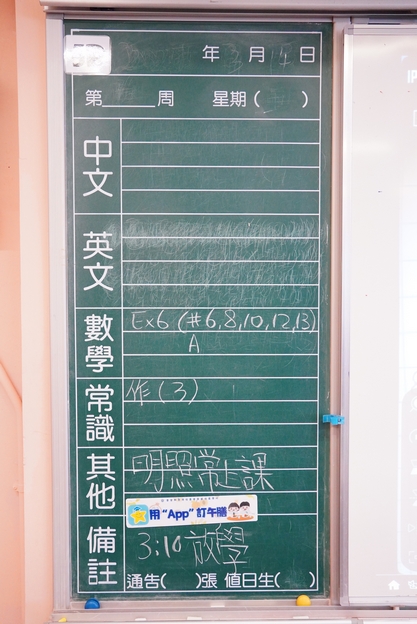 年 月 14 日
第 周 星期( )
中文
英文
數學 Ex6 (#6,8,10,12,13)
A
常識 作(3)
其他 明照常上課
用“App”訂午膳
備註 3:10 放學
通告( )張 值日生( )